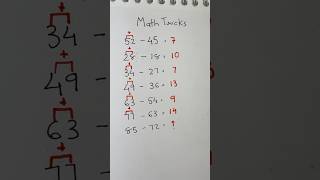 Math Twicks
+
52 - 45 = 7
+
28 - 18 = 10
+
34 - 27 = 7
+
49 - 36 = 13
+
63 - 54 = 9
+
77 - 63 = 14
85 - 72 = ?
34
+
49
+
63
+
77